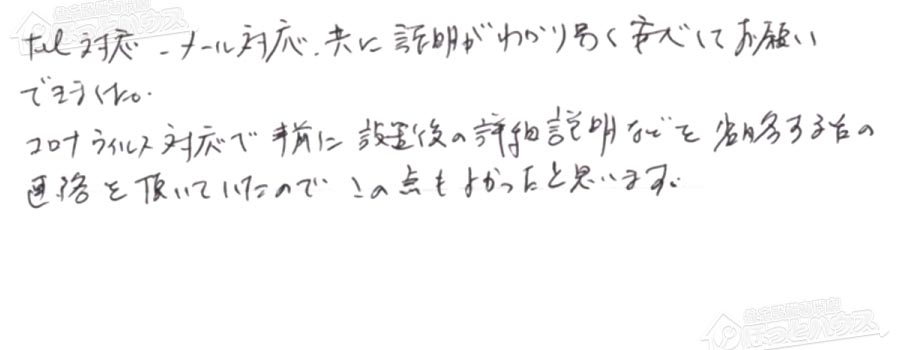 tel対応、メール対応、共に説明がわかり易く安心してお願い
できました。
コロナウイルス対応で事前に設置後の詳細説明などを省略する旨の
連絡を頂いていたので この点もよかったと思います。
ほっとハウス